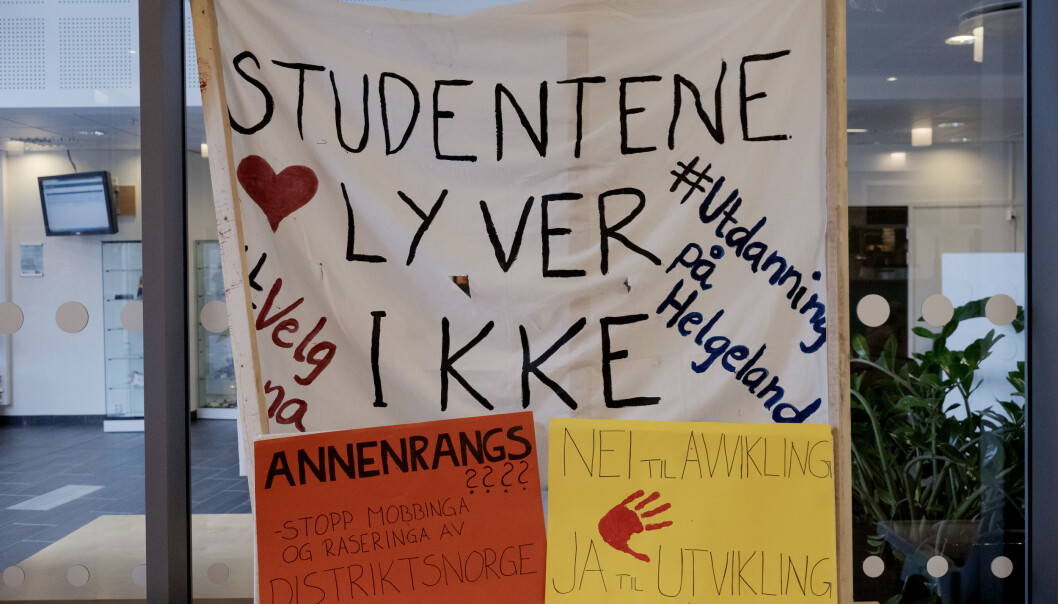 STUDENTENE
LYVER
IKKE
#Utdanning
på
Helgeland
#Velg
na
ANNENRANGS
????
-STOPP MOBBINGA
OG RASERINGA AV
DISTRIKTSNORGE
NEI TIL AVVIKLING
JA TIL UTVIKLING